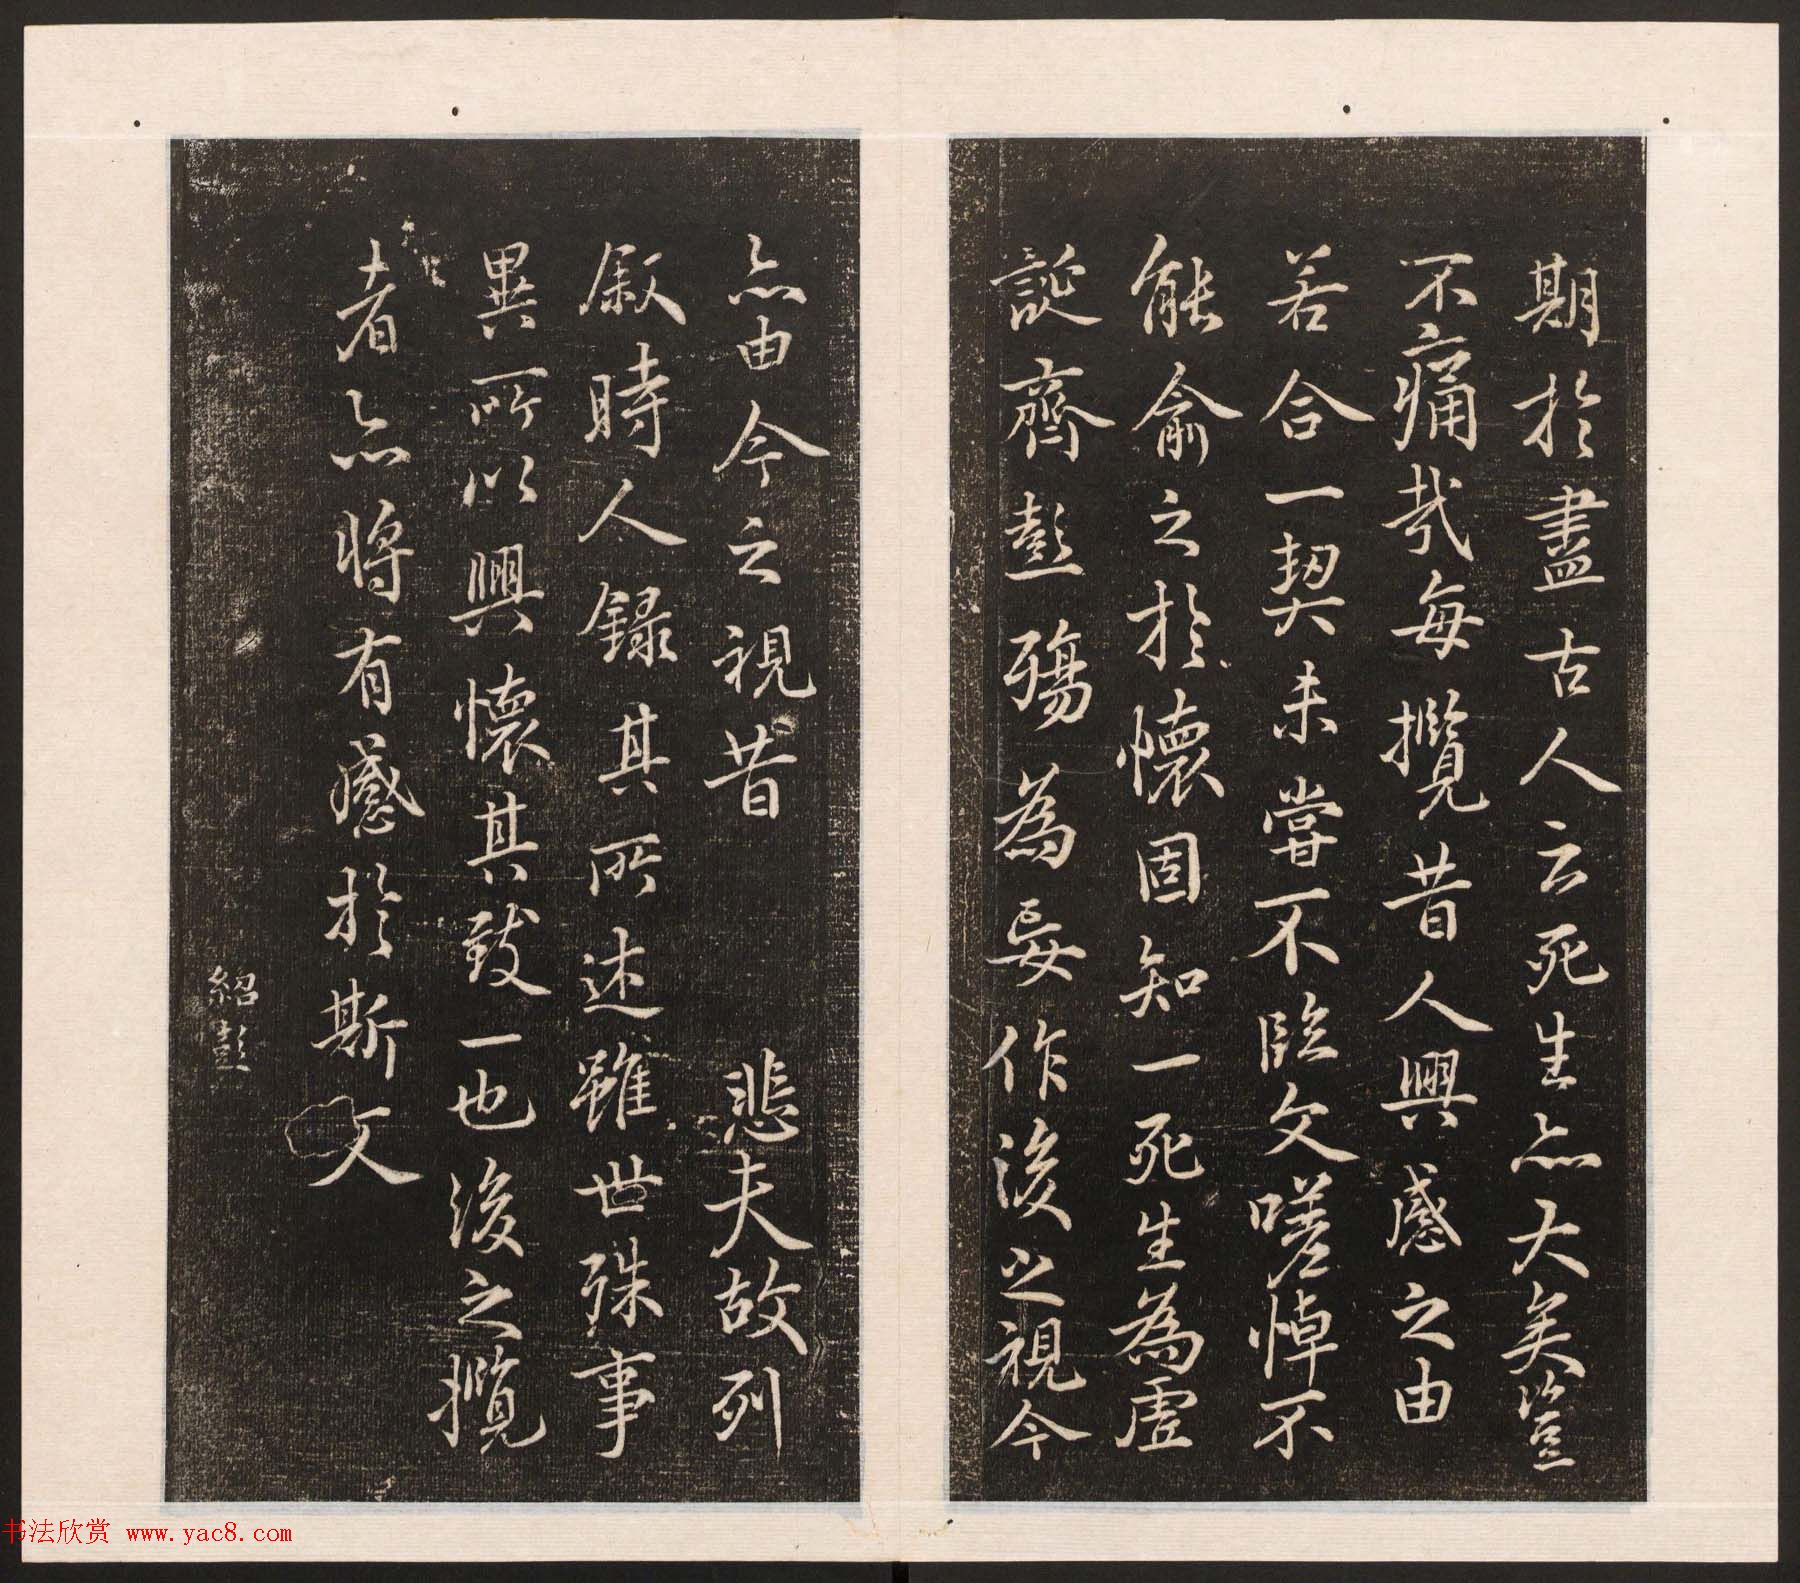 期於盡古人云死生亦大矣豈
不痛哉每攬昔人興感之由
若合一契未嘗不臨文嗟悼不
能喻之於懷固知一死生為虛
誕齊彭殤為妄作後之視今
亦由今之視昔 悲夫故列
叙時人錄其所述雖世殊事
異所以興懷其致一也後之攬
者亦將有感於斯文
紹彭
书法欣赏 www.yac8.com